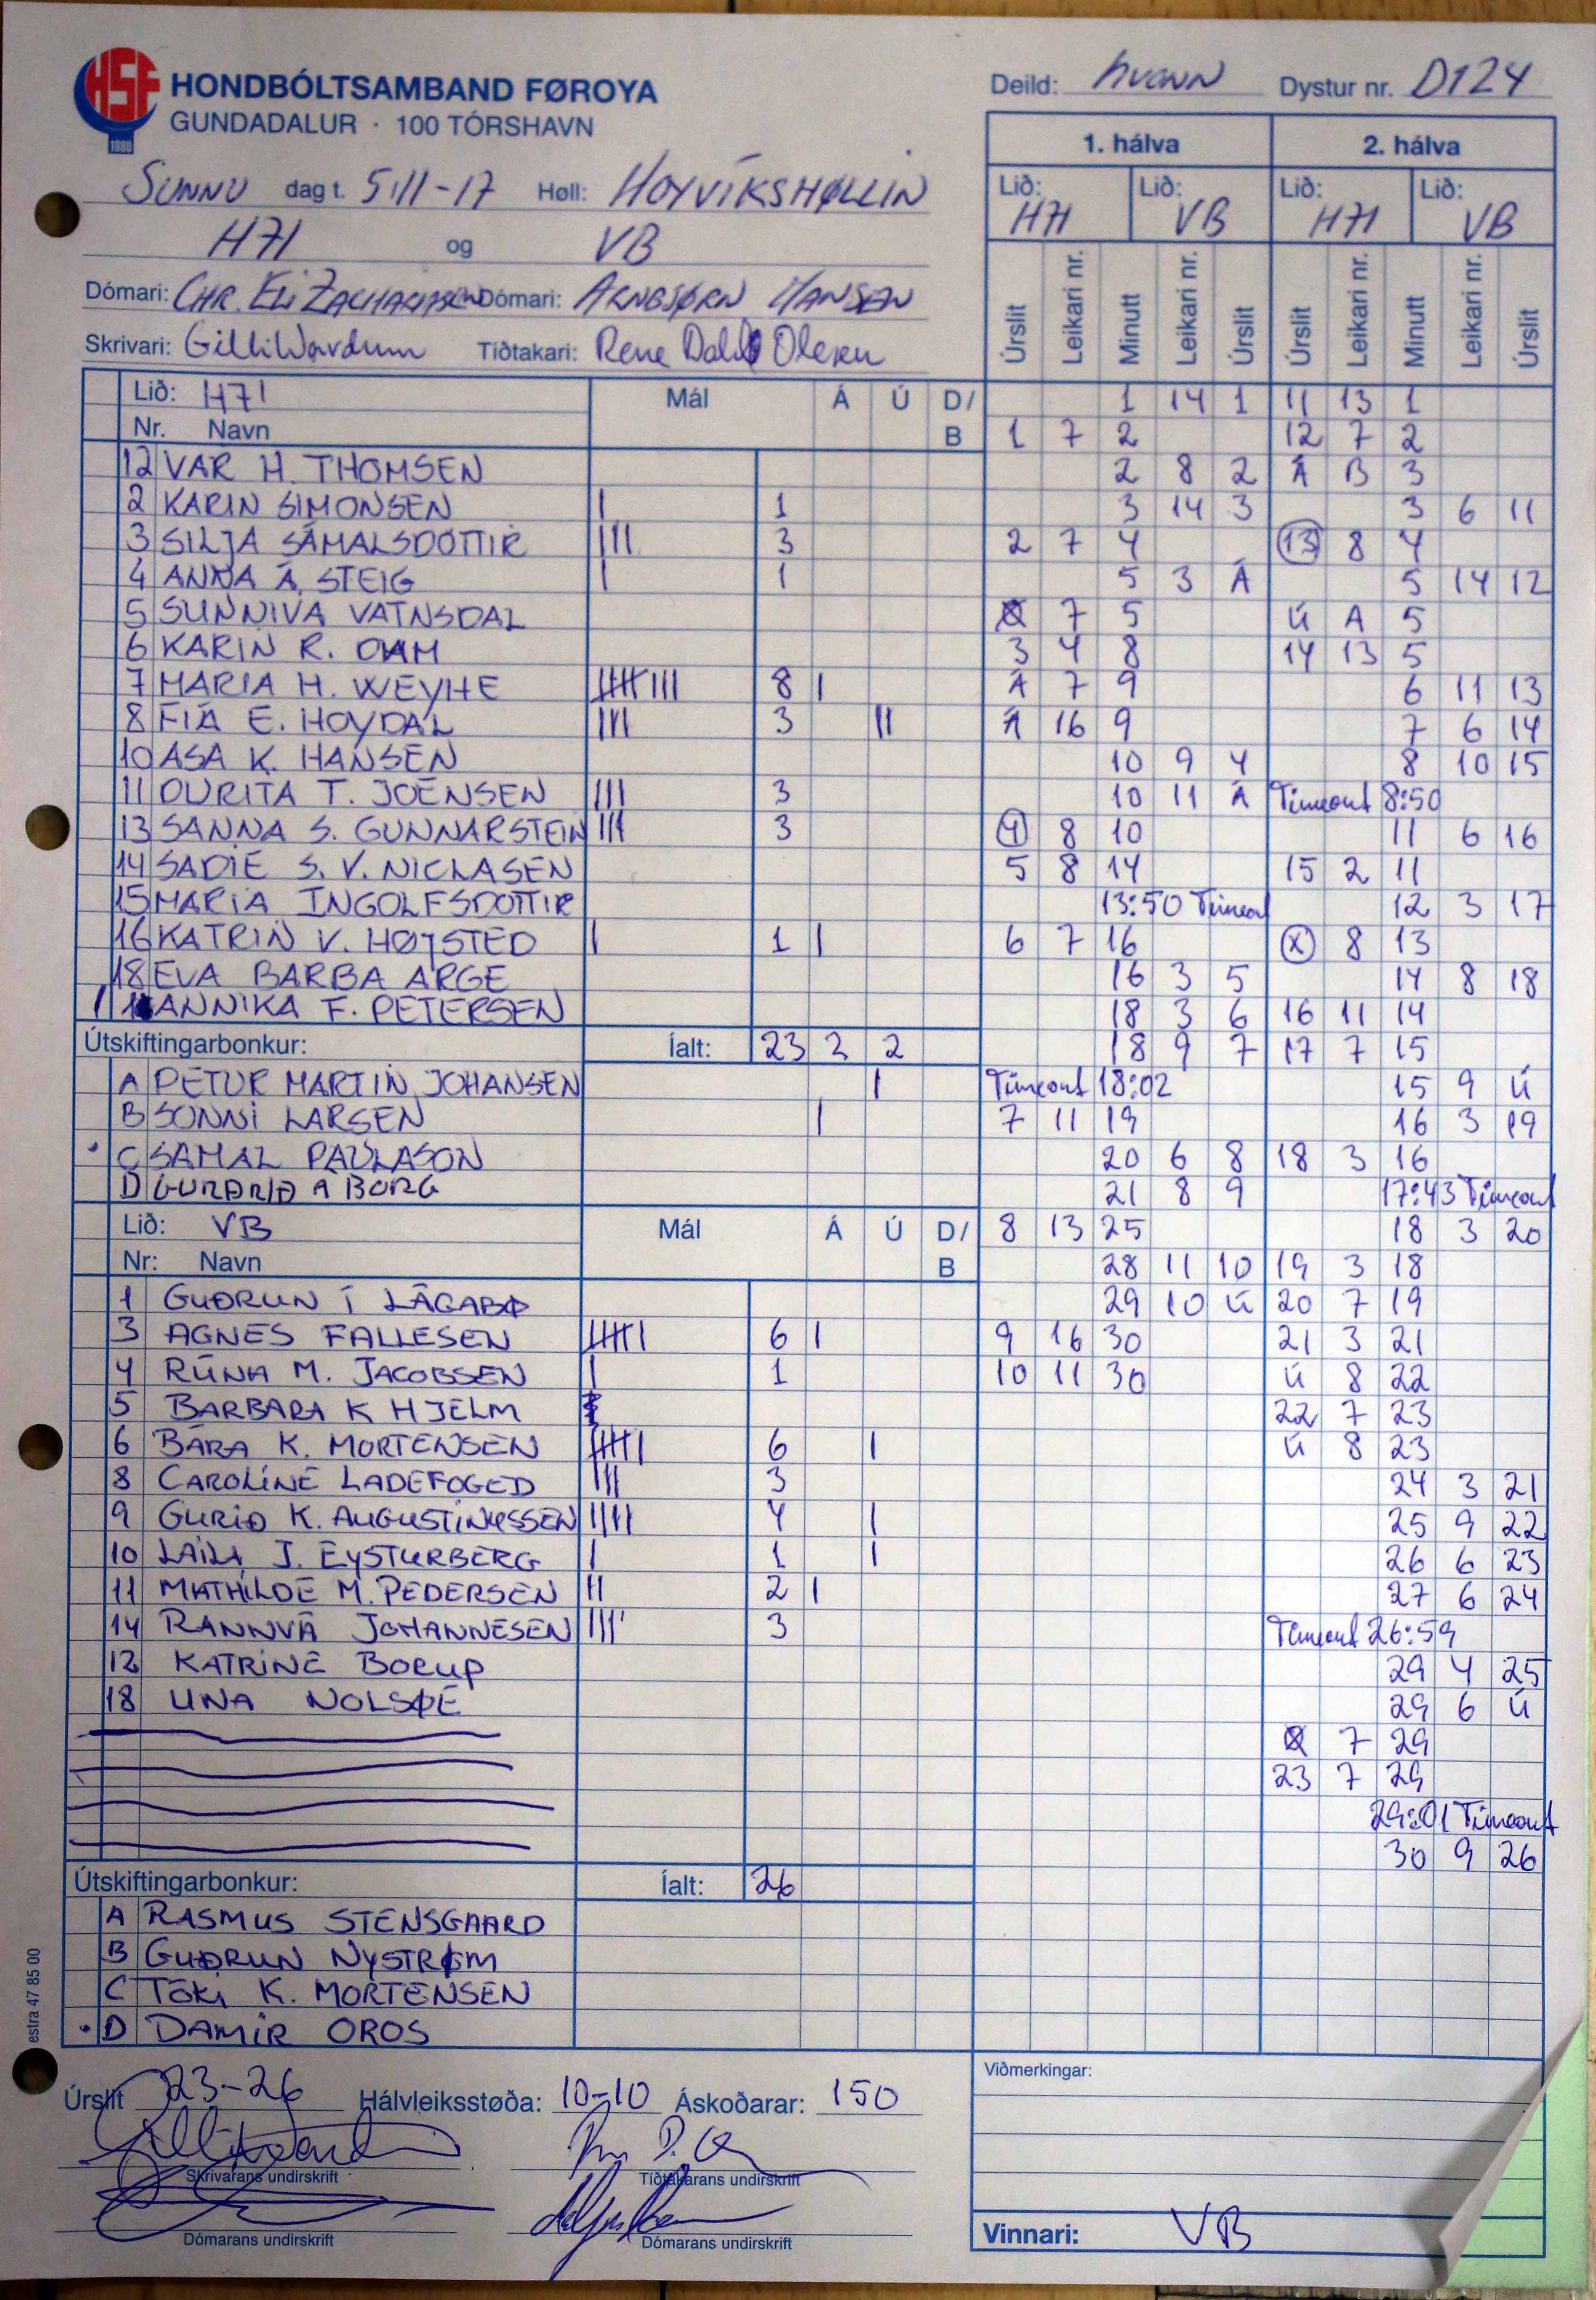 HSF
1980
HONDBÓLTSAMBAND FØROYA
GUNDADALUR · 100 TÓRSHAVN
Deild: KVONN Dystur nr. D124
SUNNU dag t. 5/11-17 Høll: HOYVÍKSHØLLIN
H71 og VB
Dómari: CHR. ELI ZACHARIASEN Dómari: ARNBJØRN HANSEN
Skrivari: Gilli Wardum Tíðtakari: Rene Dahl Olesen
1. hálva 2. hálva
Lið: H71 Lið: VB Lið: H71 Lið: VB
Úrslit Leikari nr. Minutt Leikari nr. Úrslit Úrslit Leikari nr. Minutt Leikari nr. Úrslit
Lið: H71 Mál Á Ú D/B
Nr. Navn
12 VÁR H. THOMSEN
2 KARIN SIMONSEN I 1
3 SILJA SÁMALSDÓTTIR III 3
4 ANNA Á STEIG I 1
5 SUNNIVA VATNSDAL
6 KARIN R. DAM
7 MARIA H. WEYHE IIIII III 8 I
8 FÍA E. HOYDAL III 3 II
10 ASA K. HANSEN
11 DURITA T. JOENSEN III 3
13 SANNA S. GUNNARSTEIN III 3
14 SADIE S. V. NICLASEN
15 MARIA INGOLFSDOTTIR
16 KATRIN V. HØJSTED I 1 I
18 EVA BARBA ARGE
1 ANNIKA F. PETERSEN
Útskiftingarbonkur: Íalt: 23 2 2
A PETUR MARTIN JOHANSEN I
B SONNI LARSEN I
C SAMAL PAULASON
D GURÐRIÐ Á BORG
Lið: VB Mál Á Ú D/B
Nr: Navn
1 GUÐRUN Í LÁGABØ
3 AGNES FALLESEN IIIII I 6 I
4 RÚNA M. JACOBSEN I 1
5 BARBARA K HJELM
6 BÁRA K. MORTENSEN IIIII I 6 I
8 CAROLINE LADEFOGED III 3
9 GURIÐ K. AUGUSTINUSSEN IIII 4 I
10 LAILA J. EYSTURBERG I 1 I
11 MATHILDE M. PEDERSEN II 2 I
14 RANNVÁ JOHANNESEN III 3
12 KATRINE BORUP
18 UNA NOLSØE
Útskiftingarbonkur: Íalt: 26
A RASMUS STENSGAARD
B GUÐRUN NYSTRØM
C TÓKI K. MORTENSEN
D DAMIR OROS
1 14 1 11 13 1
1 7 2 12 7 2
2 8 2 Á B 3
3 14 3 3 6 11
2 7 4 13 8 4
5 3 Á 5 14 12
7 5 Ú A 5
3 4 8 14 13 5
Á 7 9 6 11 13
Á 16 9 7 6 14
10 9 4 8 10 15
10 11 Á Timeout 8:50
4 8 10 11 6 16
5 8 14 15 2 11
13:50 Timeout 12 3 17
6 7 16 X 8 13
16 3 5 14 8 18
18 3 6 16 11 14
18 9 7 17 7 15
Timeout 18:02 15 9 Ú
7 11 19 16 3 19
20 6 8 18 3 16
21 8 9 17:43 Timeout
8 13 25 18 3 20
28 11 10 19 3 18
29 10 Ú 20 7 19
9 16 30 21 3 21
10 11 30 Ú 8 22
22 7 23
Ú 8 23
24 3 21
25 9 22
26 6 23
27 6 24
Timeout 26:59
29 4 25
29 6 Ú
7 29
23 7 29
29:01 Timeout
30 9 26
estra 47 85 00
Úrslit 23-26 Hálvleiksstøða: 10-10 Áskoðarar: 150
Skrivarans undirskrift Tíðtakarans undirskrift
Dómarans undirskrift Dómarans undirskrift
Viðmerkingar:
Vinnari: VB